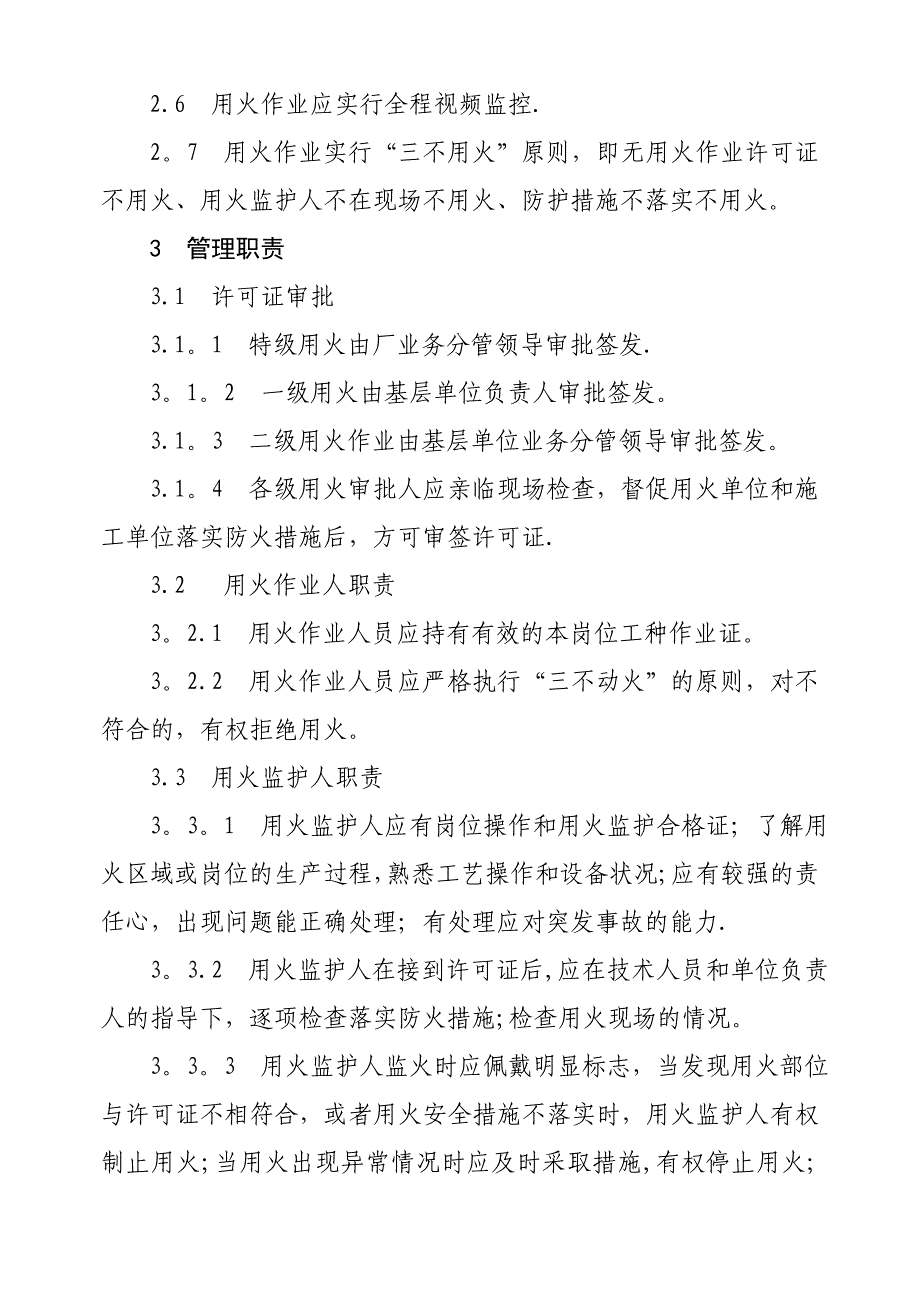 2.6 用火作业应实行全程视频监控.
2。7 用火作业实行“三不用火”原则，即无用火作业许可证
不用火、用火监护人不在现场不用火、防护措施不落实不用火。
3 管理职责
3.1 许可证审批
3.1。1 特级用火由厂业务分管领导审批签发.
3。1。2 一级用火由基层单位负责人审批签发。
3.1。3 二级用火作业由基层单位业务分管领导审批签发。
3.1。4 各级用火审批人应亲临现场检查，督促用火单位和施
工单位落实防火措施后，方可审签许可证.
3.2 用火作业人职责
3。2.1 用火作业人员应持有有效的本岗位工种作业证。
3。2.2 用火作业人员应严格执行“三不动火”的原则，对不
符合的，有权拒绝用火。
3.3 用火监护人职责
3。3。1 用火监护人应有岗位操作和用火监护合格证；了解用
火区域或岗位的生产过程,熟悉工艺操作和设备状况;应有较强的责
任心，出现问题能正确处理；有处理应对突发事故的能力.
3。3.2 用火监护人在接到许可证后,应在技术人员和单位负责
人的指导下，逐项检查落实防火措施;检查用火现场的情况。
3。3。3 用火监护人监火时应佩戴明显标志，当发现用火部位
与许可证不相符合，或者用火安全措施不落实时，用火监护人有权
制止用火;当用火出现异常情况时应及时采取措施,有权停止用火；